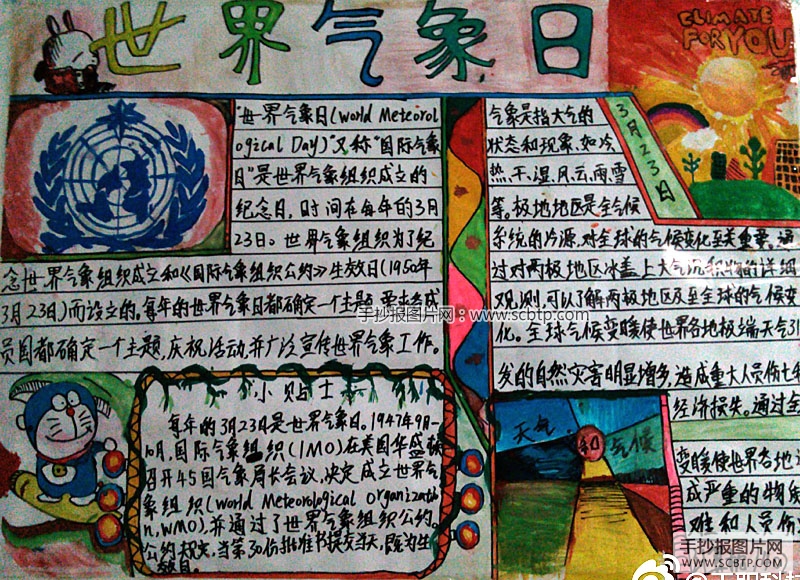 世界气象日
CLIMATE
FOR YOU
3月23日
"世界气象日(World Meteorol
ogical Day)"又称"国际气象
日"是世界气象组织成立的
纪念日,时间在每年的3月
23日。世界气象组织为了纪
念世界气象组织成立和《国际气象组织公约》生效日(1950年
3月23日)而设立的。每年的世界气象日都确定一个主题,要求各成
员国都确定一个主题,庆祝活动,并广泛宣传世界气象工作。
气象是指大气的
状态和现象,如冷、
热、干、湿、风、云、雨、雪
等。极地地区是全气候
系统的冷源,对全球的气候变化至关重要。通
过对两极地区冰盖上大气沉积物的详细
观测,可以了解两极地区及至全球的气候变
化。全球气候变暖使世界各地极端天气引
发的自然灾害明显增多,造成重大人员伤亡和
经济损失。通过全
变暖使世界各地
成严重的物质
难和人员伤
小贴士
每年的3月23日是世界气象日。1947年9月-
10月,国际气象组织(IMO)在美国华盛顿
召开45国气象局长会议,决定成立世界气
象组织(World Meteorological Organizatio
n,WMO),并通过了世界气象组织公约。
公约规定,当第30份批准书提交当天,既为生
效日。
天气 和 气候
手抄报图片网:www.scbtp.com
手抄报图片网
WWW.SCBTP.COM